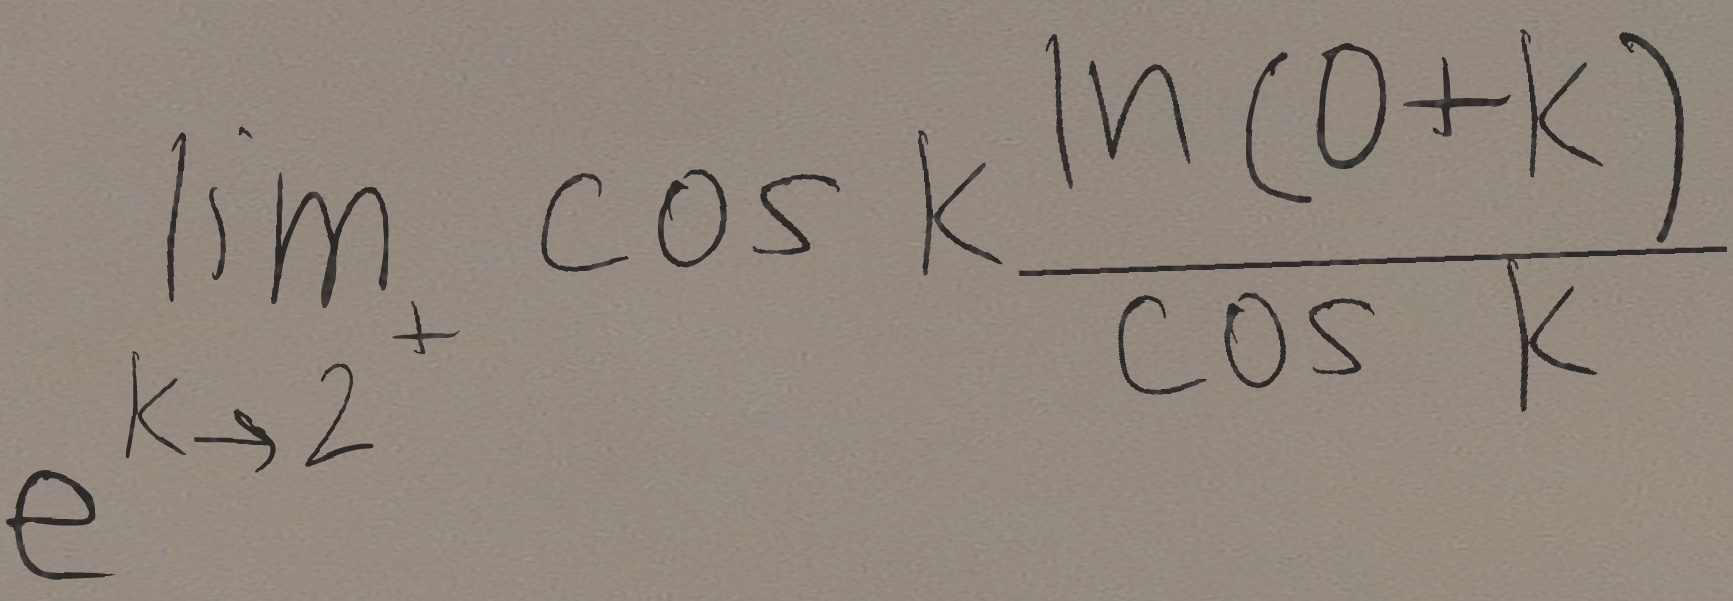 e^{\lim_{k \to 2^+} \cos k \frac{\ln(0+k)}{\cos k}}